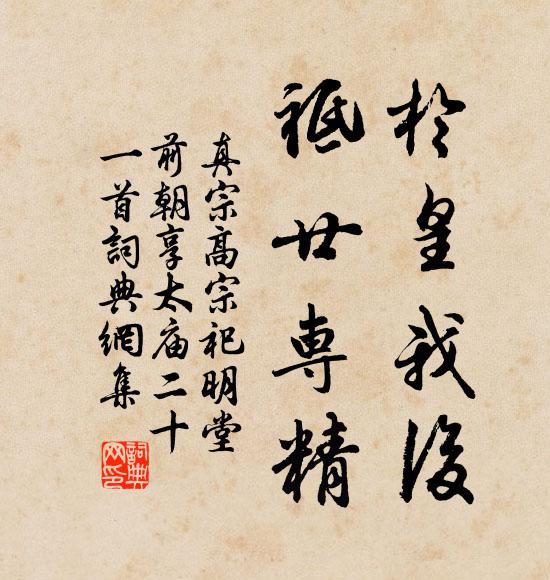 於皇我後
祗廿専精
真宗高宗祀明堂
前朝享太庙二十
一首詞典網集
詞典网印